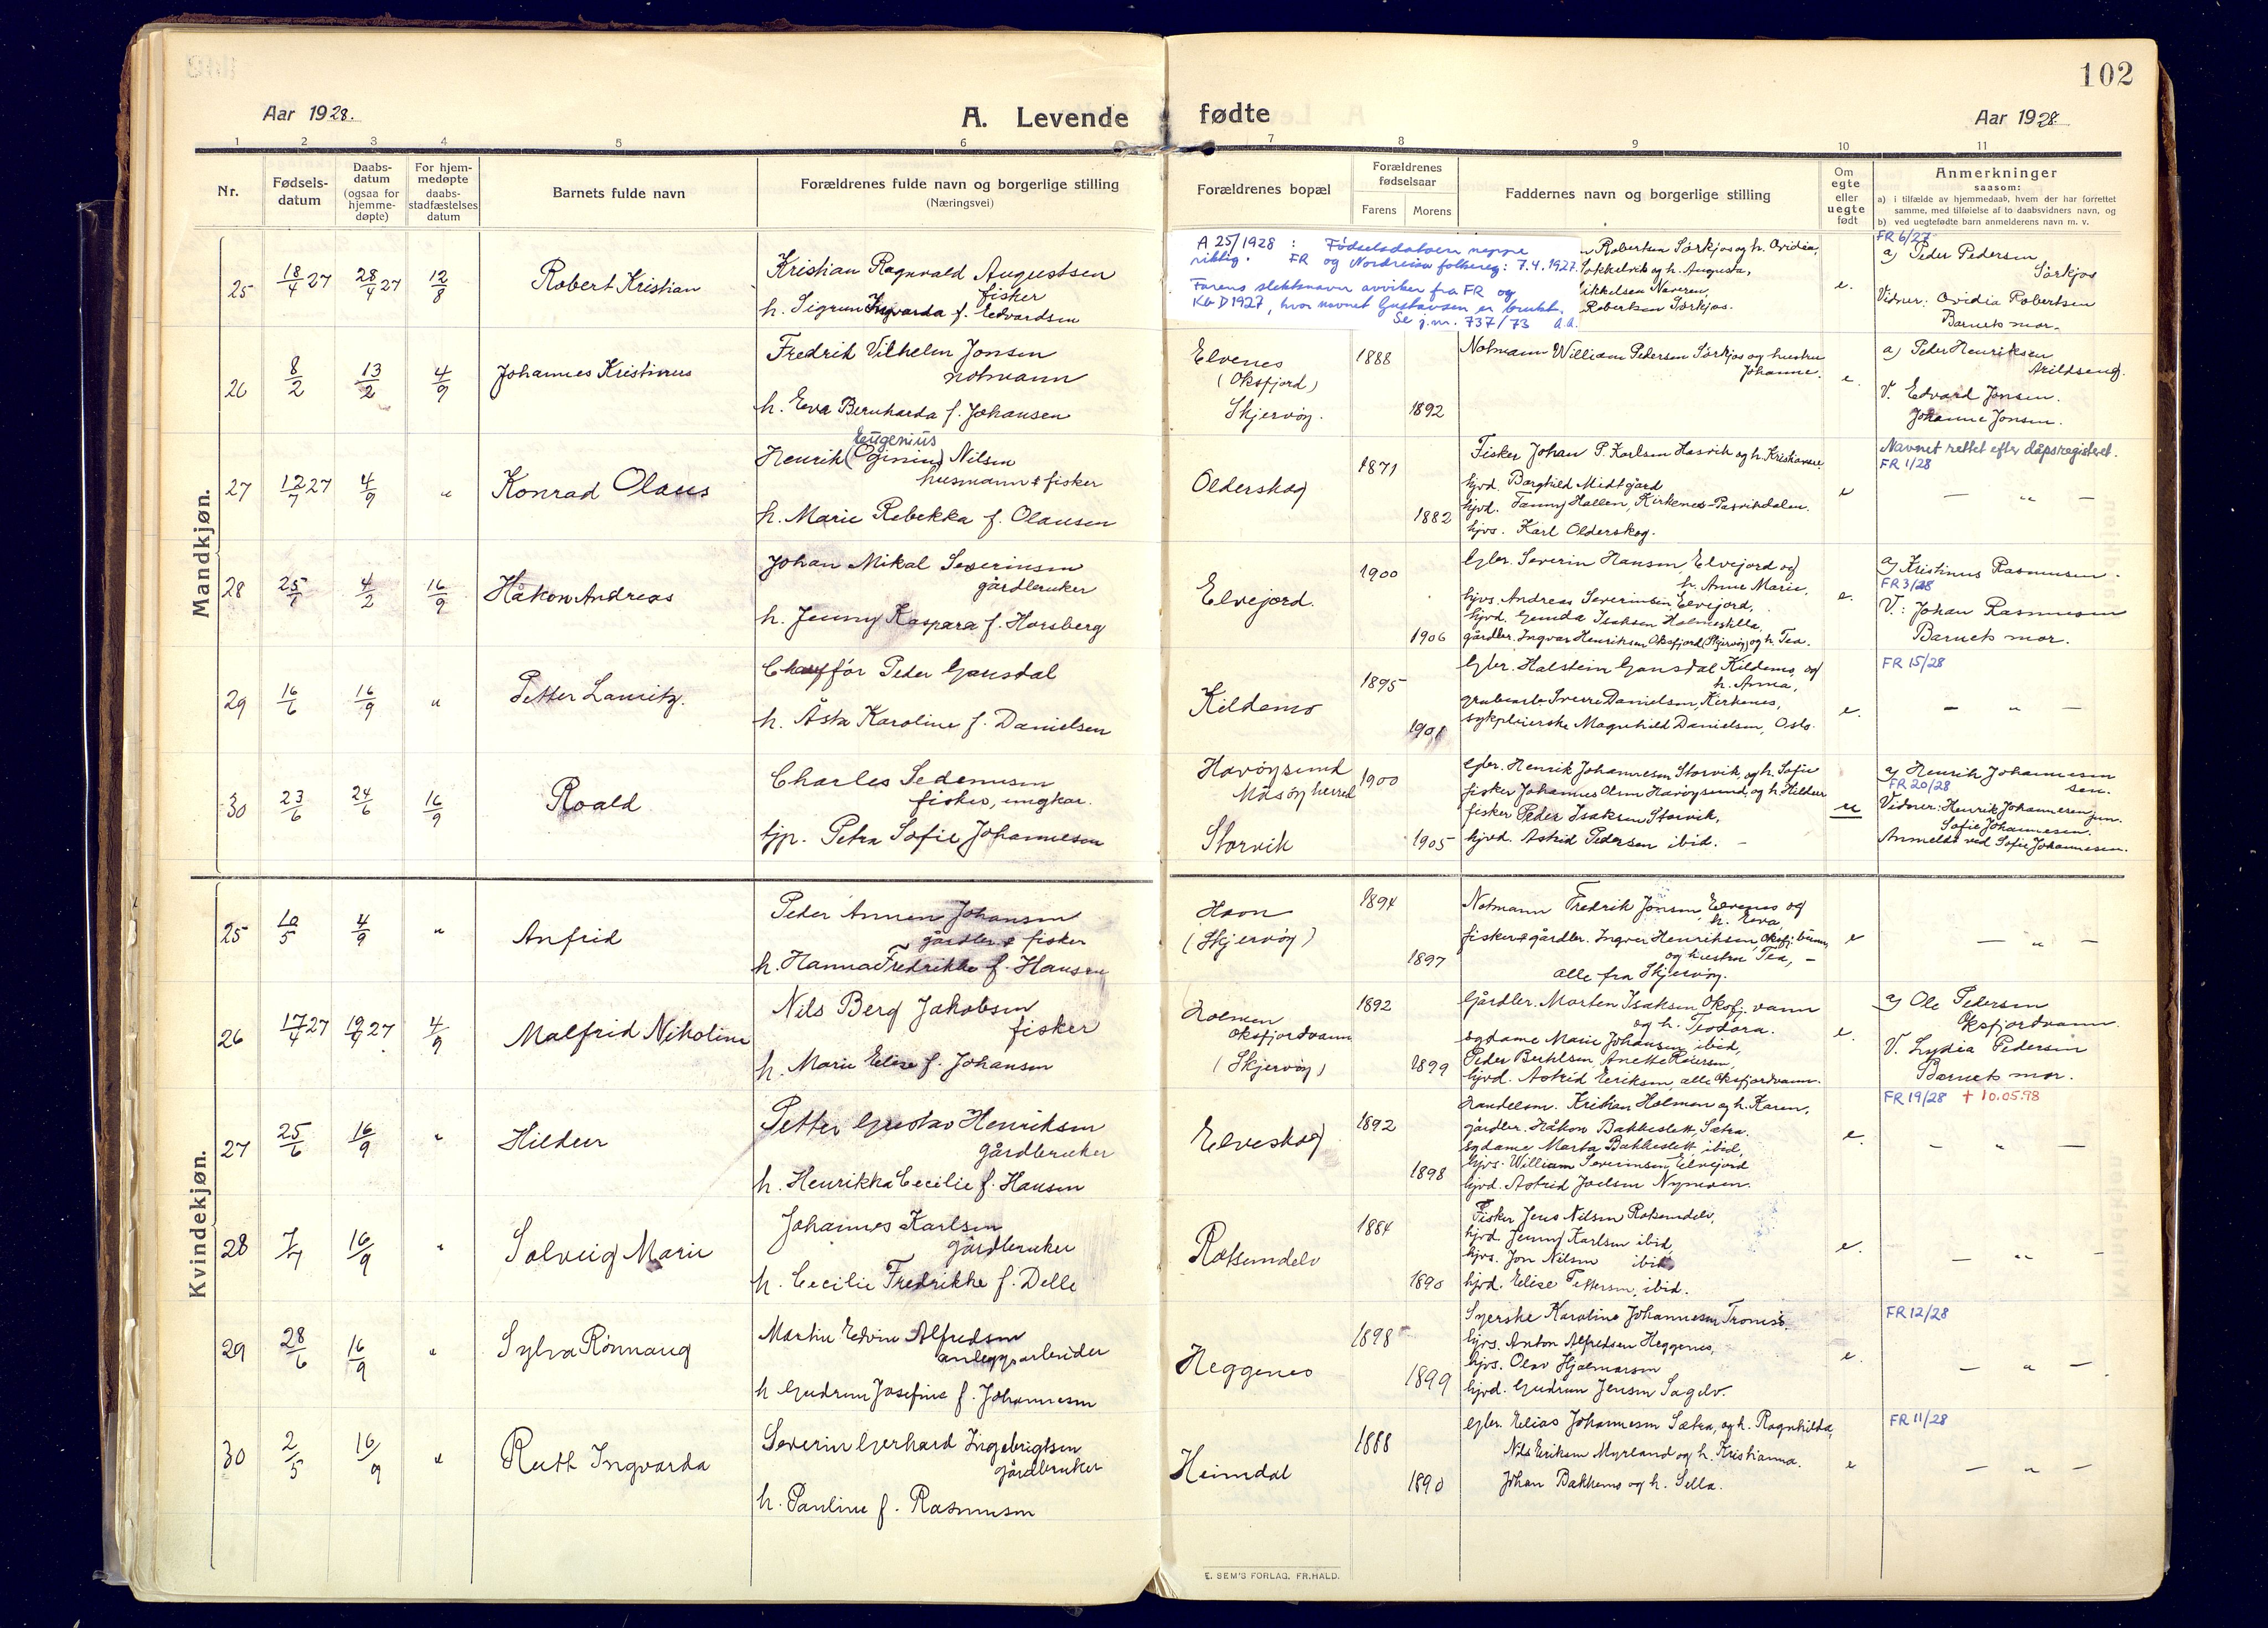 102
Aar 1928.
A. Levende fødte
Aar 1928.
1 2 3 4 5 6 7 8 9 10 11
Nr.
Fødsels-
datum
Daabs-
datum
(ogsaa for
hjemme-
døpte)
For hjem-
medøpte
daabs-
stadfæstelses
datum
Barnets fulde navn
Forældrenes fulde navn og borgerlige stilling
(Næringsvei)
Forældrenes bopæl
Forældrenes
fødselsaar
Farens Morens
Faddernes navn og borgerlige stilling
Om
egte
eller
uegte
født
Anmerkninger
saasom:
a) i tilfælde av hjemmedaab, hvem der har forrettet
samme, med tilføielse af to daabsvidners navn, og
b) ved uegtefødte barn anmelderens navn m. v.
Mandkjøn.
25 18/4 27 28/4 27 12/8 Robert Kristian
Kristian Ragnvald Augustsen
fisker
h. Sigrun Ingvarda f. Edvardsen
A 25/1928 : Fødselsdatoen neppe
riktig. FR og Nordreisa folkereg: 7.4.1927.
Farens slektsnavn avviker fra FR og
Kb D 1927, hvor navnet Gustavsen er brukt.
Se j.nr. 737/73 A.A.
Robertsen Sørkjos og h. Ovidia,
Sokkelvik og h. Augusta,
Mikkelsen Naveren,
Robertsen Sørkjos.
e.
FR 6/27
a) Peder Pedersen
Sørkjos
Vidner: Ovidia Robertsen
Barnets mor.
26 8/2 13/2 4/9 Johannes Kristinus
Fredrik Vilhelm Jonsen
notmann
h. Eva Bernharda f. Johansen
Elvenes
(Oksfjord)
Skjervøy.
1888
1892
Notmann William Pedersen Sørkjos og hustru
Johanne.
e.
a) Peder Henriksen
Arildseng.
V. Edvard Jonsen.
Johanne Jonsen.
27 12/7 27 4/9 " Konrad Olaus
Eugenius
Henrik (Ginius) Nilsen
husmann & fisker
h. Marie Rebekka f. Olausen
Olderskog
1871
1882
Fisker Johan P. Karlsen Hasvik og h. Kristiansve
hjvd. Borghild Midtgård
hjvd. Fanny Hallen, Kirkenes-Pasvikdalen.
hjvs. Karl Olderskog.
e
Navnet rettet efter dåpsregisteret.
FR 1/28
— " —
28 25/1 4/2 16/9 Håkon Andreas
Johan Mikal Severinsen
gårdbruker
h. Jenny Kaspara f. Horsberg
Elvejord.
1900
1906
Gbr. Severin Hansen, Elvejord og
h. Anne Marie,
hjvs. Andreas Severinsen, Elvejord,
hjvd. Gunda Isaksen Holmestilla,
gårdbr. Ingvar Henriksen Oksfjord (Skjervøy) og h. Tea.
e.
a) Kristinus Rasmussen.
FR 3/28
V.: Johan Rasmussen
Barnets mor.
29 16/6 16/9 " Petter Lauritz.
Chauffør Peder Gausdal
h. Åsta Karoline f. Danielsen
Kildemo
1895
1901
Gbr. Halstein Gausdal Kildemo, og
h. Anna,
grubearb. Sverre Danielsen, Kirkenes,
sykpleierske Magnhild Danielsen, Oslo.
e.
FR 15/28
— " —
30 23/6 24/6 16/9 Roald
Charles Sedeniusen
fisker, ungkar.
tjp. Petra Sofie Johannesen
Havøysund
Måsøy herred
Storvik
1900
1905
Gbr. Henrik Johannesen Storvik, og h. Sofie
fisker Johannes Olsen Havøysund, og h. Hildur
fisker Peder Isaksen Storvik,
hjvd. Astrid Pedersen ibid. —
u
a) Henrik Johannesen
sen.
FR 20/28
Vidner: Henrik Johannesen jun.
Sofie Johannesen.
Anmeldt ved Sofie Johannesen.
Kvindekjøn.
25 10/5 4/9 " Anfrid
Peder Annen Johansen
gårdbr. & fisker
h. Hanna Fredrikke f. Hansen
Havn
(Skjervøy)
1894
1897
Notmann Fredrik Jonsen, Elvenes og
h. Eva,
fisker & gårdbr. Ingver Henriksen, Oksfj. bunn,
og hustru Tea, —
alle fra Skjervøy.
e
— " —
26 17/4 27 19/4 27 4/9 Malfrid Nikoline
Nils Berg Jakobsen
fisker
h. Marie Elise f. Johansen
Holmen
Oksfjordvann
(Skjervøy)
1892
1899
Gårdbr. Morten Isaksen, Oksfj. vann
og h. Teodora.
sydame Marie Johansen ibid,
Peder Berthlsen, Anette Reiersen,
hjvd. Astrid Eriksen, alle Oksfjordvann.
e.
a) Ole Pedersen
Oksfjordvann.
V. Lydia Pedersen
Barnets mor.
27 25/6 16/9 " Hildur
Petter Gustav Henriksen
gårdbruker
h. Henrikka Cecilie f. Hansen
Elveskog
1892
1898
Handelsm. Kristian Holmen og h. Karen,
gårdbr. Håkon Bakkeslett, Sætra.
sydame Marta Bakkeslett, ibid,
hjvs. William Severinsen, Elvejord
hjvd. Astrid Joelsen Nymoen.
e.
FR 19/28 † 10.05.98
— " —
28 7/7 16/9 " Solveig Marie
Johannes Karlsen
gårdbruker
h. Cecilie Fredrikke f. Delle
Rotsundelv
1884
1890
Fisker Jens Nilsen Rotsundelv,
hjvd. Jenny Karlsen ibid,
hjvs. Jon Nilsen ibid,
hjvd. Elise Pettersen, ibid.
e.
— " —
29 28/6 16/9 " Sylva Rønnaug
Martin Edvin Alfredsen
anleggsarbeider
h Gudrun Josefine f. Johannesen
Heggenes
1898
1899
Syerske Karoline Johannesen Tromsø.
hjvs. Anton Alfredsen Heggenes,
hjvs. Olav Hjalmarsen
hjvd. Gudrun Jensen Sagelv.
e.
FR 12/28
— " —
30 2/5 16/9 " Ruth Ingvarda
Severin Gerhard Ingebrigtsen
gårdbruker
h. Pauline f. Rasmussen
Heimdal
1888
1890
Gbr. Elias Johannesen Sætra, og h. Ragnhilda,
Nils Eriksen Myrland og h. Kristianna.
Johan Bakkemo og h. Sella.
e
FR 11/28
— " —
E. SEM'S FORLAG, FR.HALD.